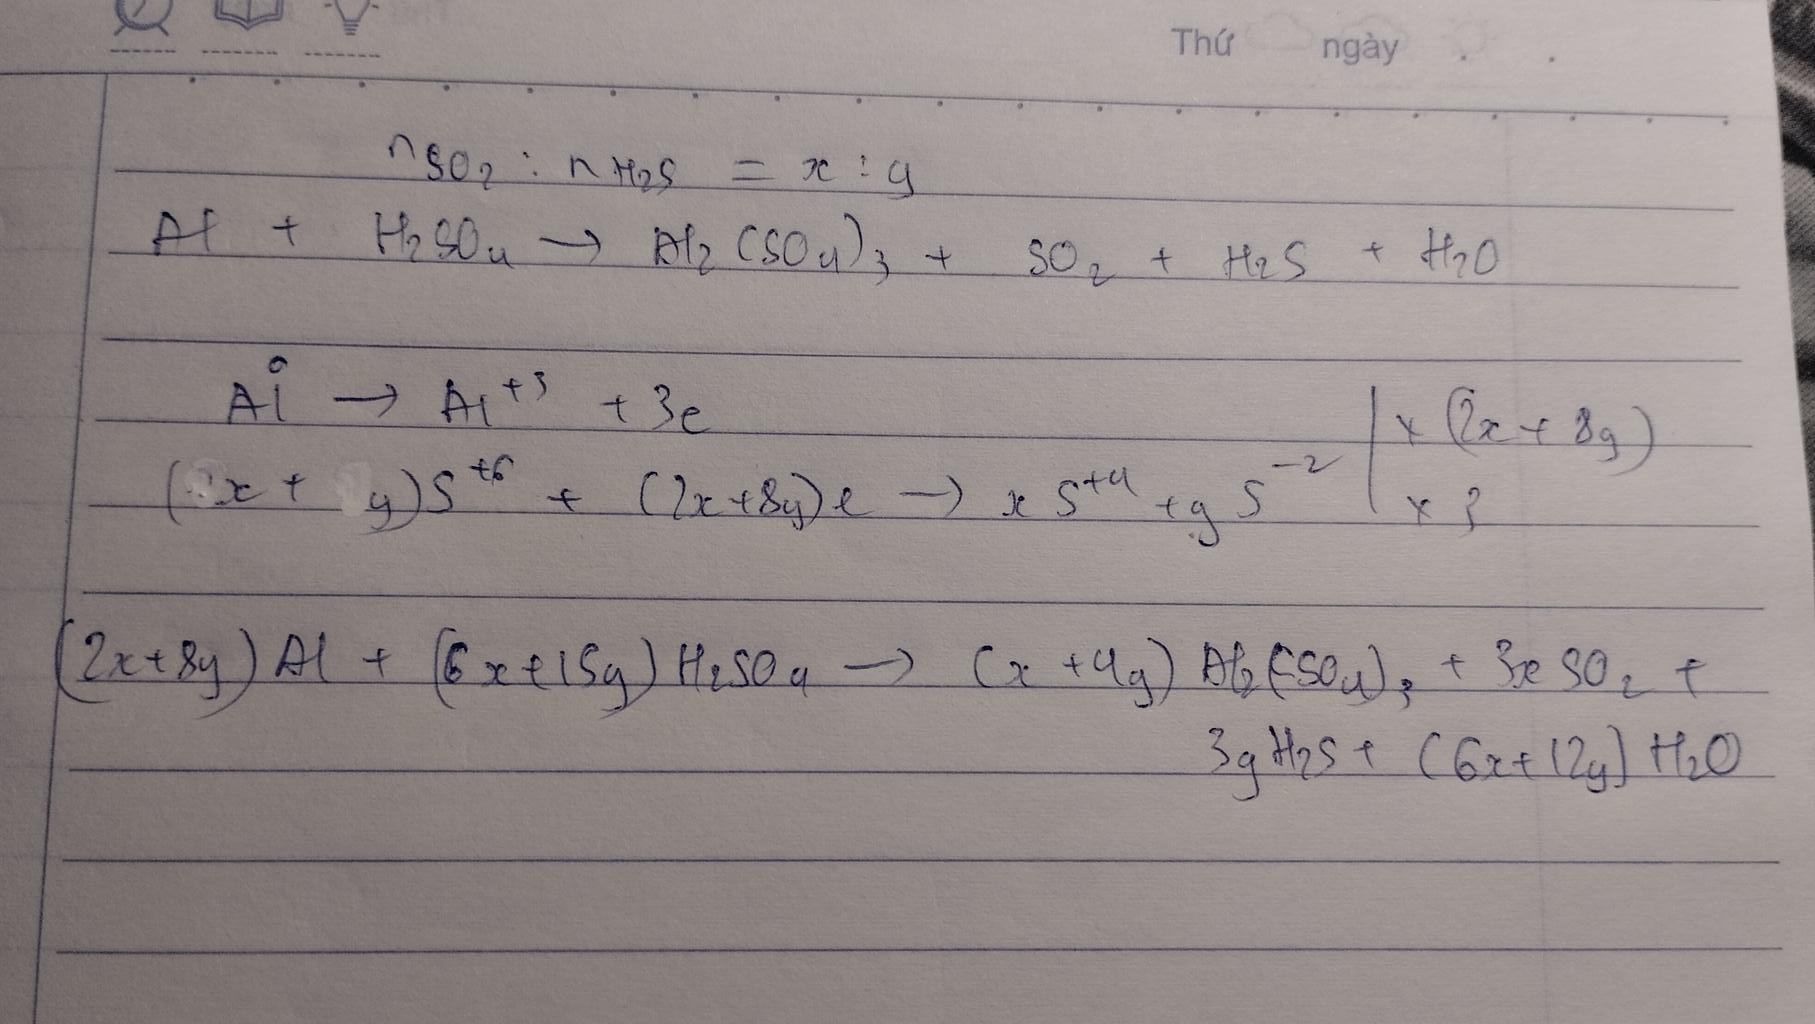 Thứ ngày
nSO₂ : nH₂S = x : y
Al + H₂SO₄ → Al₂(SO₄)₃ + SO₂ + H₂S + H₂O
Al⁰ → Al⁺³ + 3e | × (2x + 8y)
(x + y)S⁺⁶ + (2x+8y)e → x S⁺⁴ + y S⁻² | × 3
(2x+8y) Al + (6x+15y) H₂SO₄ → (x+4y) Al₂(SO₄)₃ + 3x SO₂ +
3y H₂S + (6x+12y) H₂O